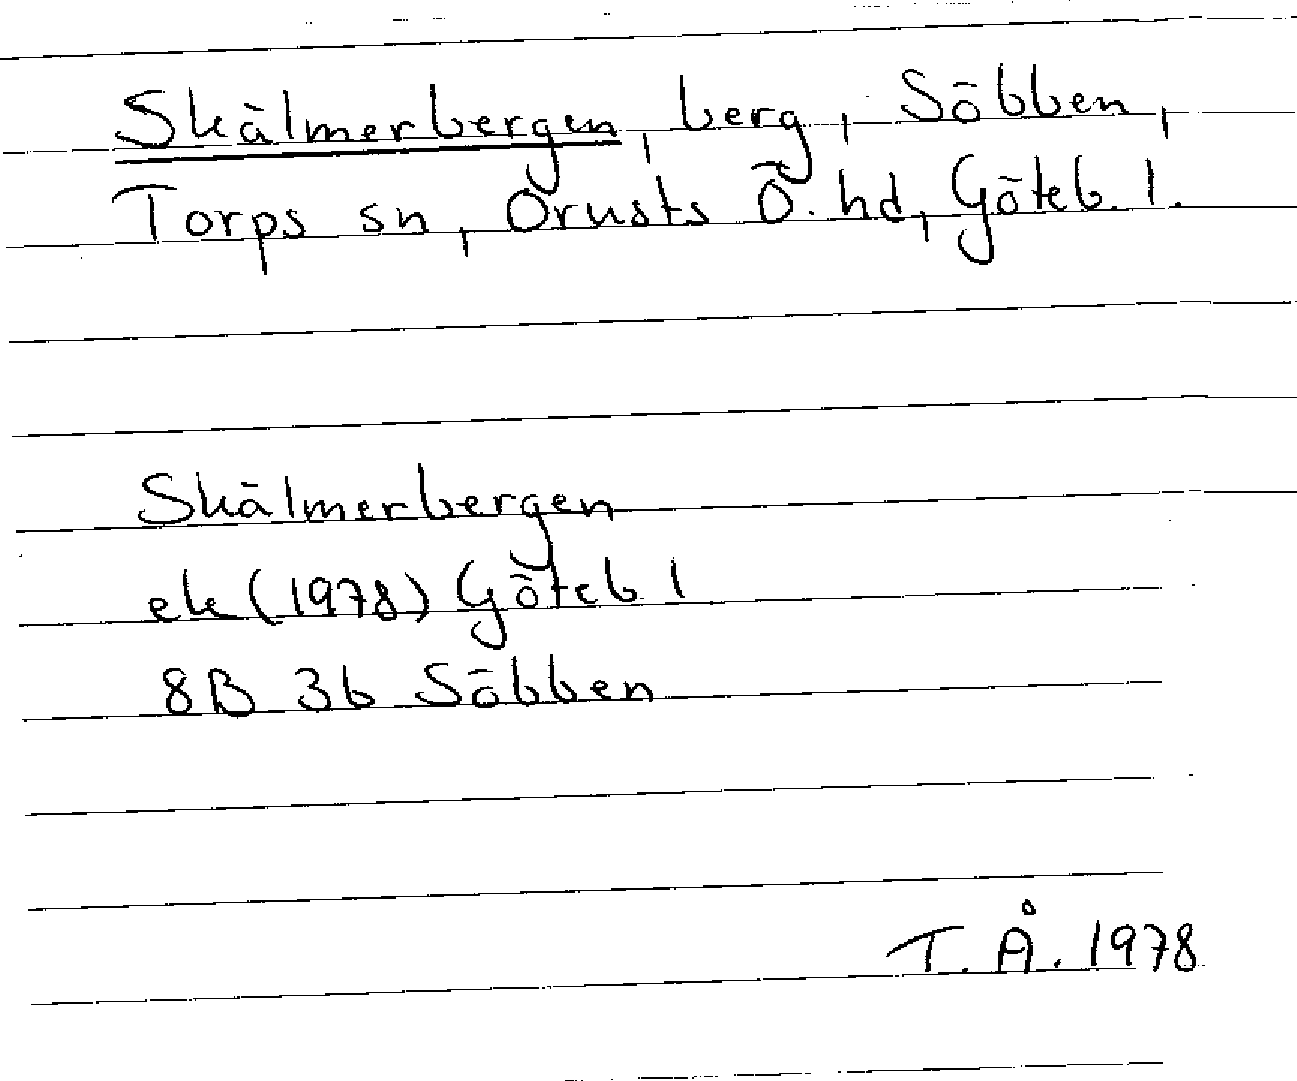 Skälmerbergen, berg, Söbben,
Torps sn, Orusts Ö. hd, Göteb. l.
Skälmerbergen
ek (1978) Göteb l
8B 3b Söbben
T. Å. 1978